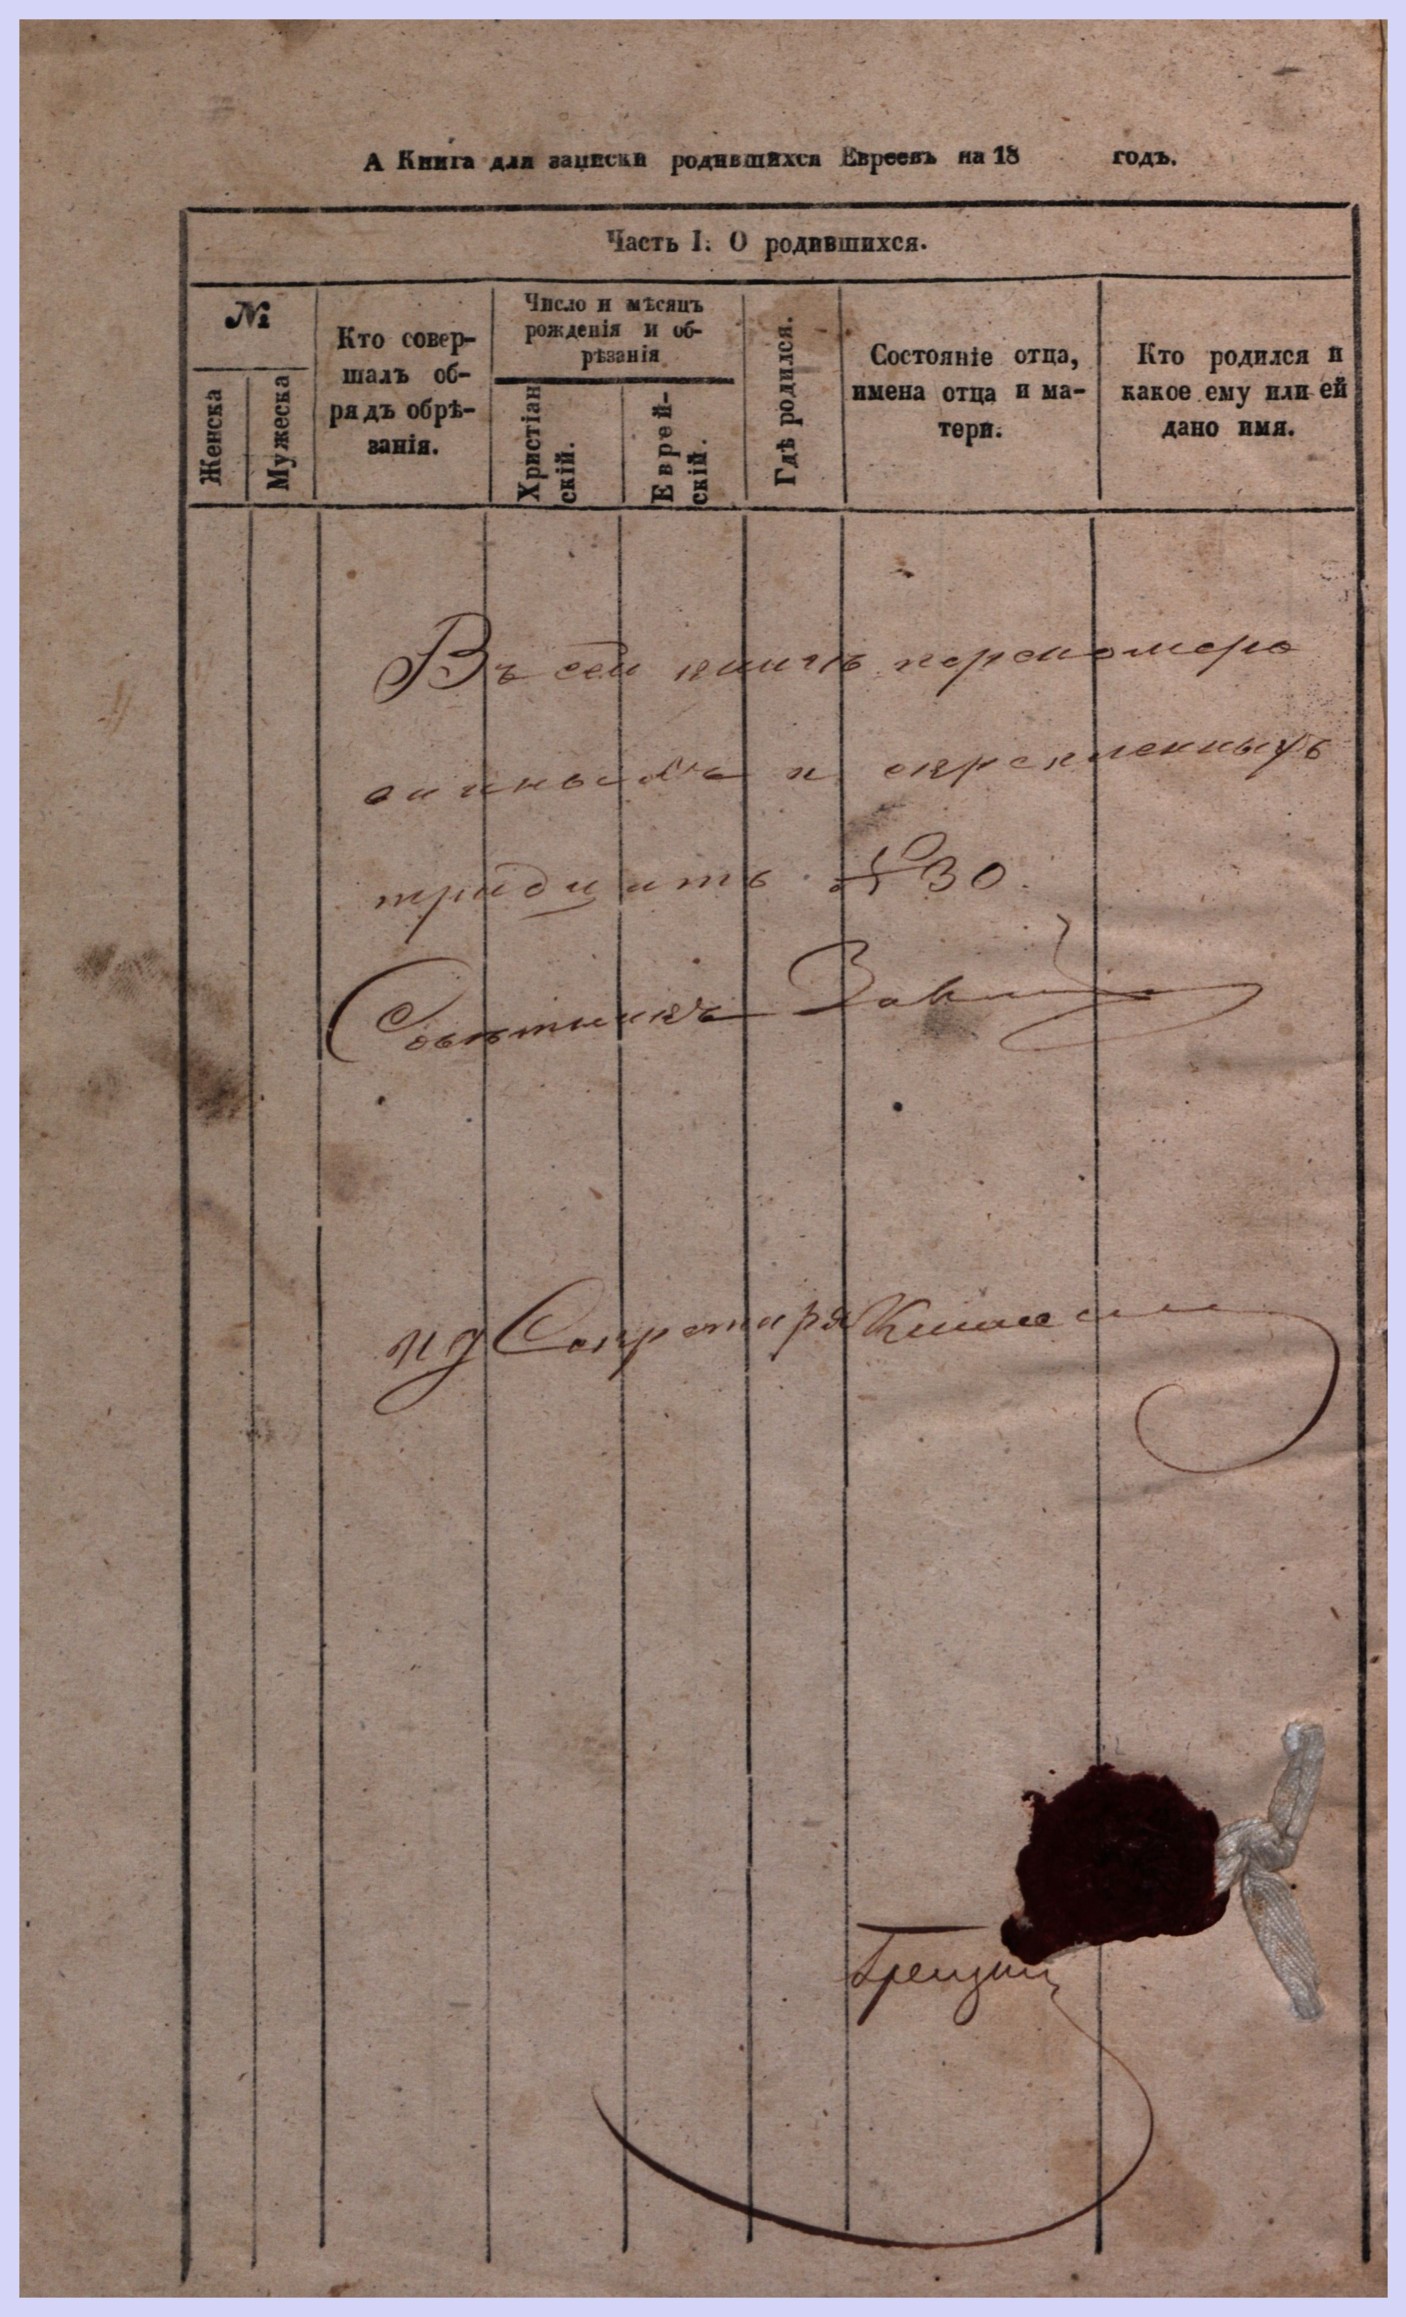 А Книга для записки родившихся Евреевъ на 18 годъ.
Часть I. О родившихся.
№
Женска
Мужеска
Кто совер-
шалъ об-
рядъ обрѣ-
занія.
Число и мѣсяцъ
рожденія и об-
рѣзанія
Христіан
скій.
Еврей-
скій.
Гдѣ родился.
Состояніе отца,
имена отца и ма-
тери.
Кто родился и
какое ему или ей
дано имя.
Въ сей книгѣ перенумеро
ванныхъ и скрепленныхъ
тридцать № 30.
Совѣтникъ
ид Секретаря